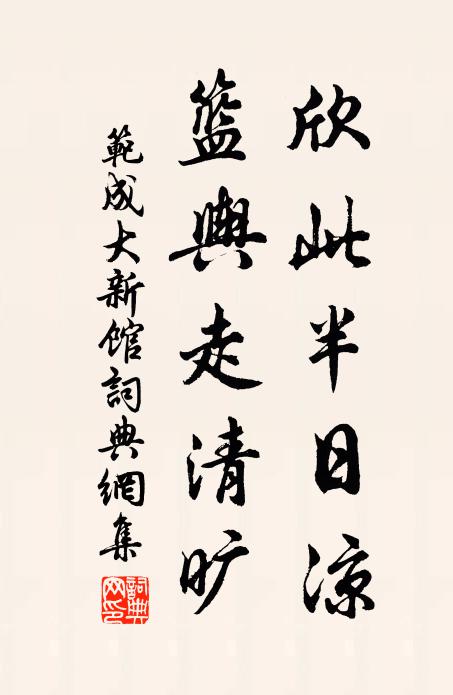 欣此半日涼
籃輿走清旷
範成大新館詞典網集
詞典網印